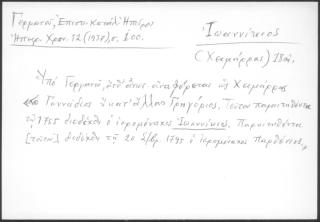 Γερμανοῦ, Ἐπισκ. Κατάλ. Ἠπείρου
Ἠπειρ. Χρον. 12 (1937), σ. 100.
Ἰωαννίκιος
(Χειμάρρας) 18αἰ.
Ὑπὸ Γερμανοῦ, ἀναφέρεται ὡς Χειμάρρας
Γεννάδιος ἢ κατ' ἄλλους Γρηγόριος. Τοῦτον παραιτηθέντα
τῷ 1755 διεδέχθη ὁ ἱερομόναχος Ἰωαννίκιος. Παραιτηθέντα
[τοῦτον] διεδέχθη τῇ 20 1795 ὁ ἱερομόναχος Παρθένιος.